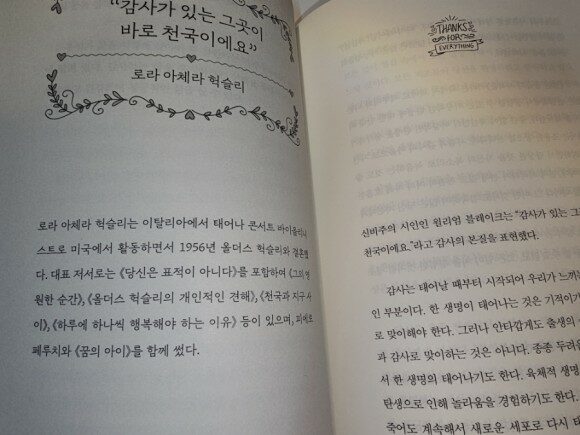 “감사가 있는 그곳이
바로 천국이에요”
로라 아체라 헉슬리
로라 아체라 헉슬리는 이탈리아에서 태어나 콘서트 바이올리니
스트로 미국에서 활동하면서 1956년 올더스 헉슬리와 결혼했
다. 대표 저서로는 《당신은 표적이 아니다》를 포함하여 《그의 영
원한 순간》, 《올더스 헉슬리의 개인적인 견해》, 《천국과 지구 사
이》, 《하루에 하나씩 행복해야 하는 이유》 등이 있으며, 피에로
페루치와 《꿈의 아이》를 함께 썼다.
THANKS
FOR
EVERYTHING
신비주의 시인인 윌리엄 블레이크는 “감사가 있는 그
천국이에요.”라고 감사의 본질을 표현했다.
감사는 태어날 때부터 시작되어 우리가 느끼는
인 부분이다. 한 생명이 태어나는 것은 기적이
로 맞이해야 한다. 그러나 안타깝게도 출생의
과 감사로 맞이하는 것은 아니다. 종종 두려움
서 한 생명이 태어나기도 한다. 육체적 생명
탄생으로 인해 놀라움을 경험하기도 한다.
죽어도 계속해서 새로운 세포로 다시 태